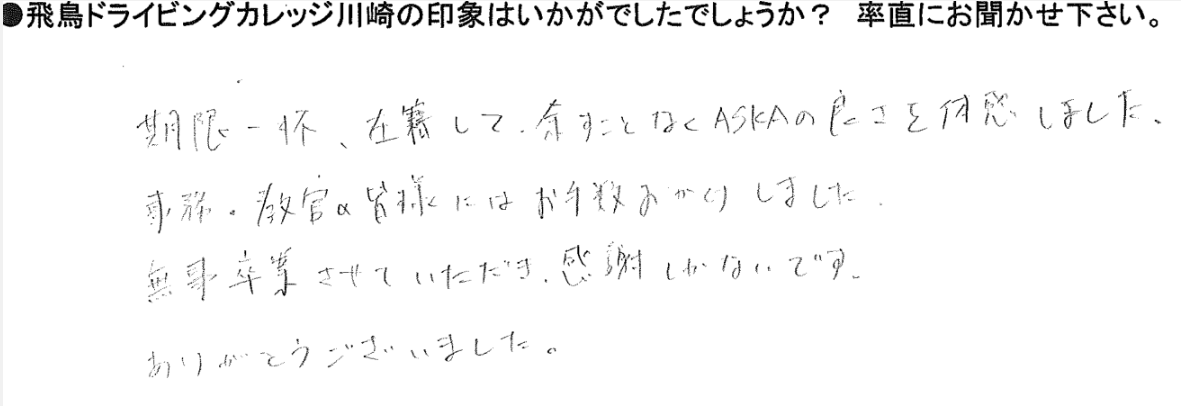 ●飛鳥ドライビングカレッジ川崎の印象はいかがでしたでしょうか？ 率直にお聞かせ下さい。
期限一杯、在籍して、余すことなくASKAの良さを体感しました、
事務・教官の皆様にはお手数おかけしました、
無事卒業させていただき、感謝しかないです、
ありがとうございました。